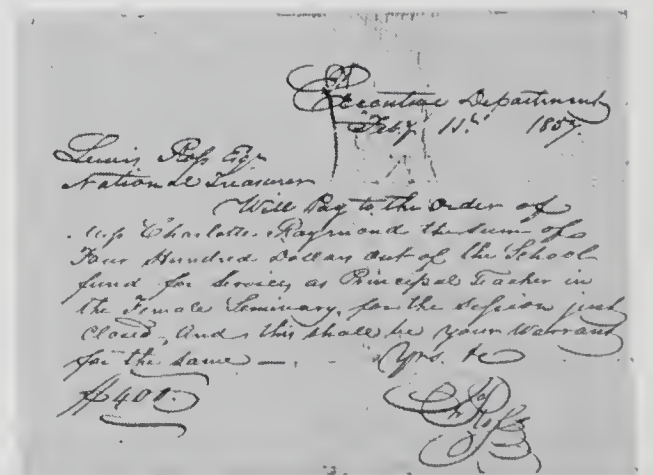 Executive Department
Feby 11th 1857.
Lewis Ross Esqr
National Treasurer
Will Pay to the order of
Miss Charlotte Raymond the sum of
Four Hundred Dollars out of the School
fund for Services as Principal Teacher in
the Female Seminary, for the session just
Closed, And this shall be your Warrant
for the same — . - Yrs. &c
$400.
Jno Ross